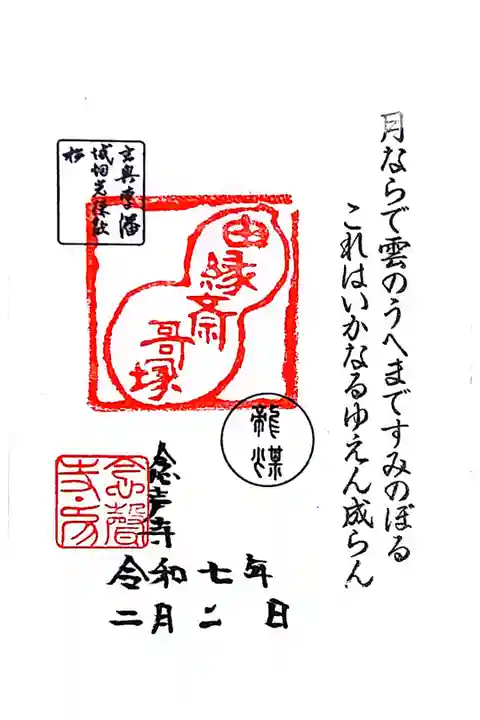 月ならで雲のうへまですみのぼる
これはいかなるゆえん成らん
由縁斎
哥塚
念声寺
念聲
寺印
令和七年
二月二日